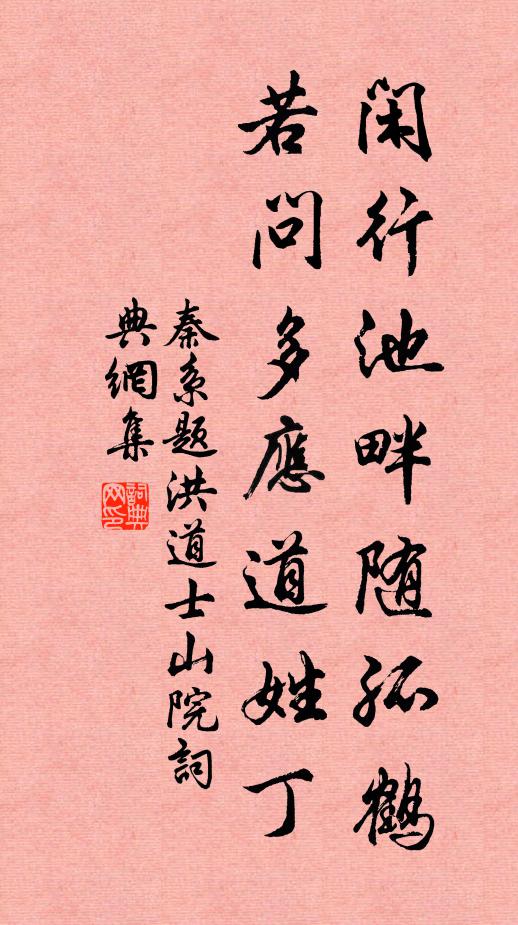 闲行池畔随孤鶴
若问多應道姓丁
秦系题洪道士山院詞
典網集
詞典网印